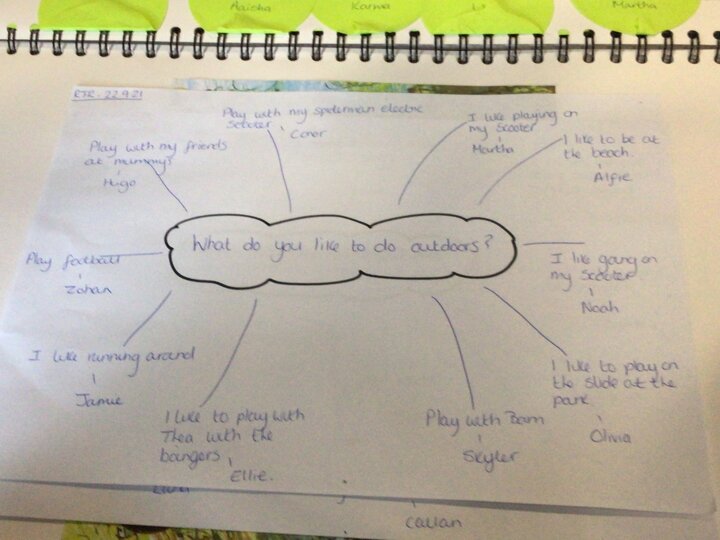 Aaisha
Karwa
Martha
RTR. 22.9.21
Play with my spiderman electric
scooter
Conor
I like playing on
my scooter
Martha
I like to be at
the beach.
Alfie
Play with my friends
at mummy's
Hugo
What do you like to do outdoors?
Play football
Zohan
I like going on
my scooter.
Noah
I like running around
Jamie
I like to play on
the slide at the
park.
Olivia
I like to play with
Thea with the
bangers
Ellie.
Play with Bam
Skyler
Callan